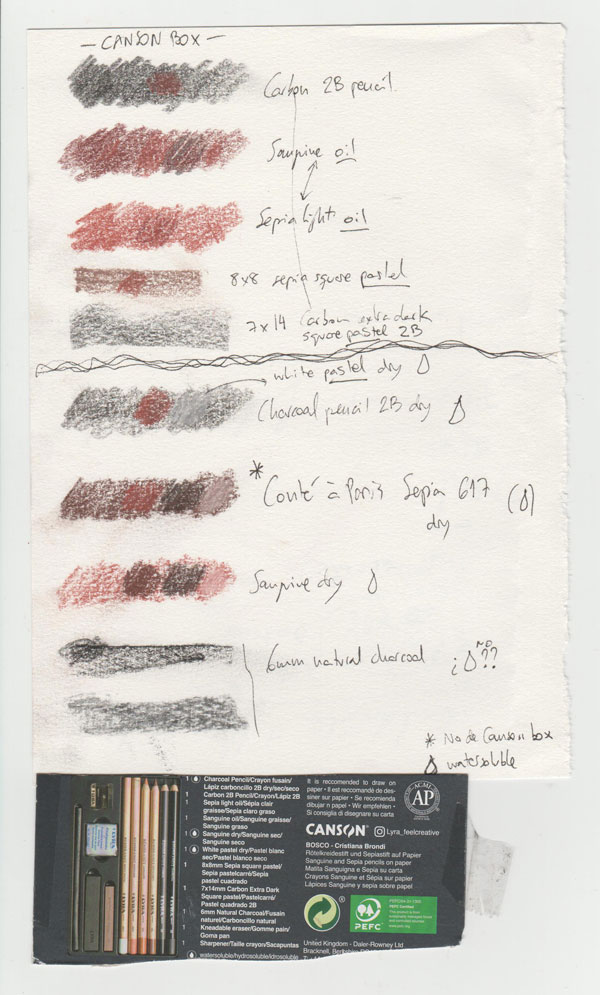 — CANSON BOX —
Carbon 2B pencil
Sanguine oil
Sepia light oil
8x8 sepia square pastel
7x14 Carbon extra dark
square pastel 2B
white pastel dry
Charcoal pencil 2B dry
* Conté à Paris Sepia 617 ( )
dry
Sanguine dry
6mm natural charcoal ¿ ??
NO
* No de Canson box
watersoluble
1 Charcoal Pencil/Crayon fusain/
Lápiz carboncillo 2B dry/sec/seco
1 Carbon 2B Pencil/Crayon/Lápiz 2B
1 Sepia light oil/Sépia clair
graisse/Sepia claro graso
1 Sanguine oil/Sanguine graisse/
Sanguine graso
1 Sanguine dry/Sanguine sec/
Sanguine seco
1 White pastel dry/Pastel blanc
sec/Pastel blanco seco
1 8x8mm Sepia square pastel/
Sepia pastelcarré/Sepia
pastel cuadrado
1 7x14mm Carbon Extra Dark
Square pastel/Pastelcarré/
Pastel quadrado 2B
1 6mm Natural Charcoal/Fusain
naturel/Carboncillo natural
1 Kneadable eraser/Gomme pain/
Goma pan
1 Sharpener/Taille crayon/Sacapuntas
watersoluble/hydrosoluble/idrosoluble
It is reccomended to draw
on paper • Il est reccomandé de des-
siner sur papier • Se recomienda
dibujar n papel • Wir empfehlen •
Si consiglia di disegnare su carta
ACMI
AP
CANSON Lyra_feelcreative
BOSCO - Cristiana Brondi
Rötelkreidestift und Sepiastift auf Papier
Sanguine and Sepia pencils on paper
Matita Sanguigna e Sepia su carta
Crayons Sanguine et Sépia sur papier
Lápices Sanguine y sepia sobre papel
PEFC
United Kingdom - Daler-Rowney Ltd